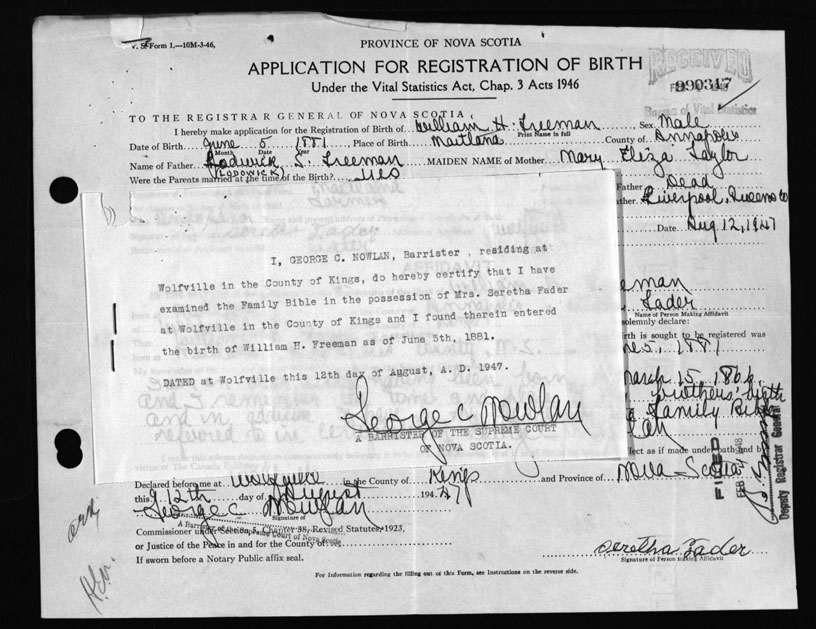 V. S. Form 1.—10M-3-46.
PROVINCE OF NOVA SCOTIA
APPLICATION FOR REGISTRATION OF BIRTH
Under the Vital Statistics Act, Chap. 3 Acts 1946
RECEIVED
990347
Bureau of Vital Statistics
TO THE REGISTRAR GENERAL OF NOVA SCOTIA,
I hereby make application for the Registration of Birth of William H. Freeman Sex Male
Print Name in full
Date of Birth June 5 1881 Place of Birth Maitland County of Annapolis
Month Date Year
Name of Father Rodwick S. Freeman MAIDEN NAME of Mother Mary Eliza Taylor
(LODOWICK)
Were the Parents married at the time of the Birth? yes
Father Dead
Liverpool, Queens Co
Date Aug 12, 1947
I, GEORGE C. NOWLAN, Barrister, residing at
Wolfville in the County of Kings, do hereby certify that I have
examined the Family Bible in the possession of Mrs. Seretha Fader
at Wolfville in the County of Kings and I found therein entered
the birth of William H. Freeman as of June 5th, 1881.
DATED at Wolfville this 12th day of August, A. D. 1947.
George C Nowlan
A BARRISTER OF THE SUPREME COURT
OF NOVA SCOTIA.
eman
Fader
Name of Person Making Affidavit
solemnly declare:
birth is sought to be registered was
ne 5, 1881
March 15, 1866
brothers' birth
family Bible
lan
ect as if made under oath and by
Declared before me at Wolfville in the County of Kings and Province of Nova Scotia
this 12th day of August 1947
George C Nowlan
Signature of
A Barrister of the Supreme Court of Nova Scotia
Commissioner under Section 5, Chapter 38, Revised Statutes, 1923,
or Justice of the Peace in and for the County of
If sworn before a Notary Public affix seal.
Seretha Fader
Signature of Person making Affidavit
For Information regarding the filling out of this Form, see Instructions on the reverse side.
FILED
FEB 1948
Deputy Registrar General